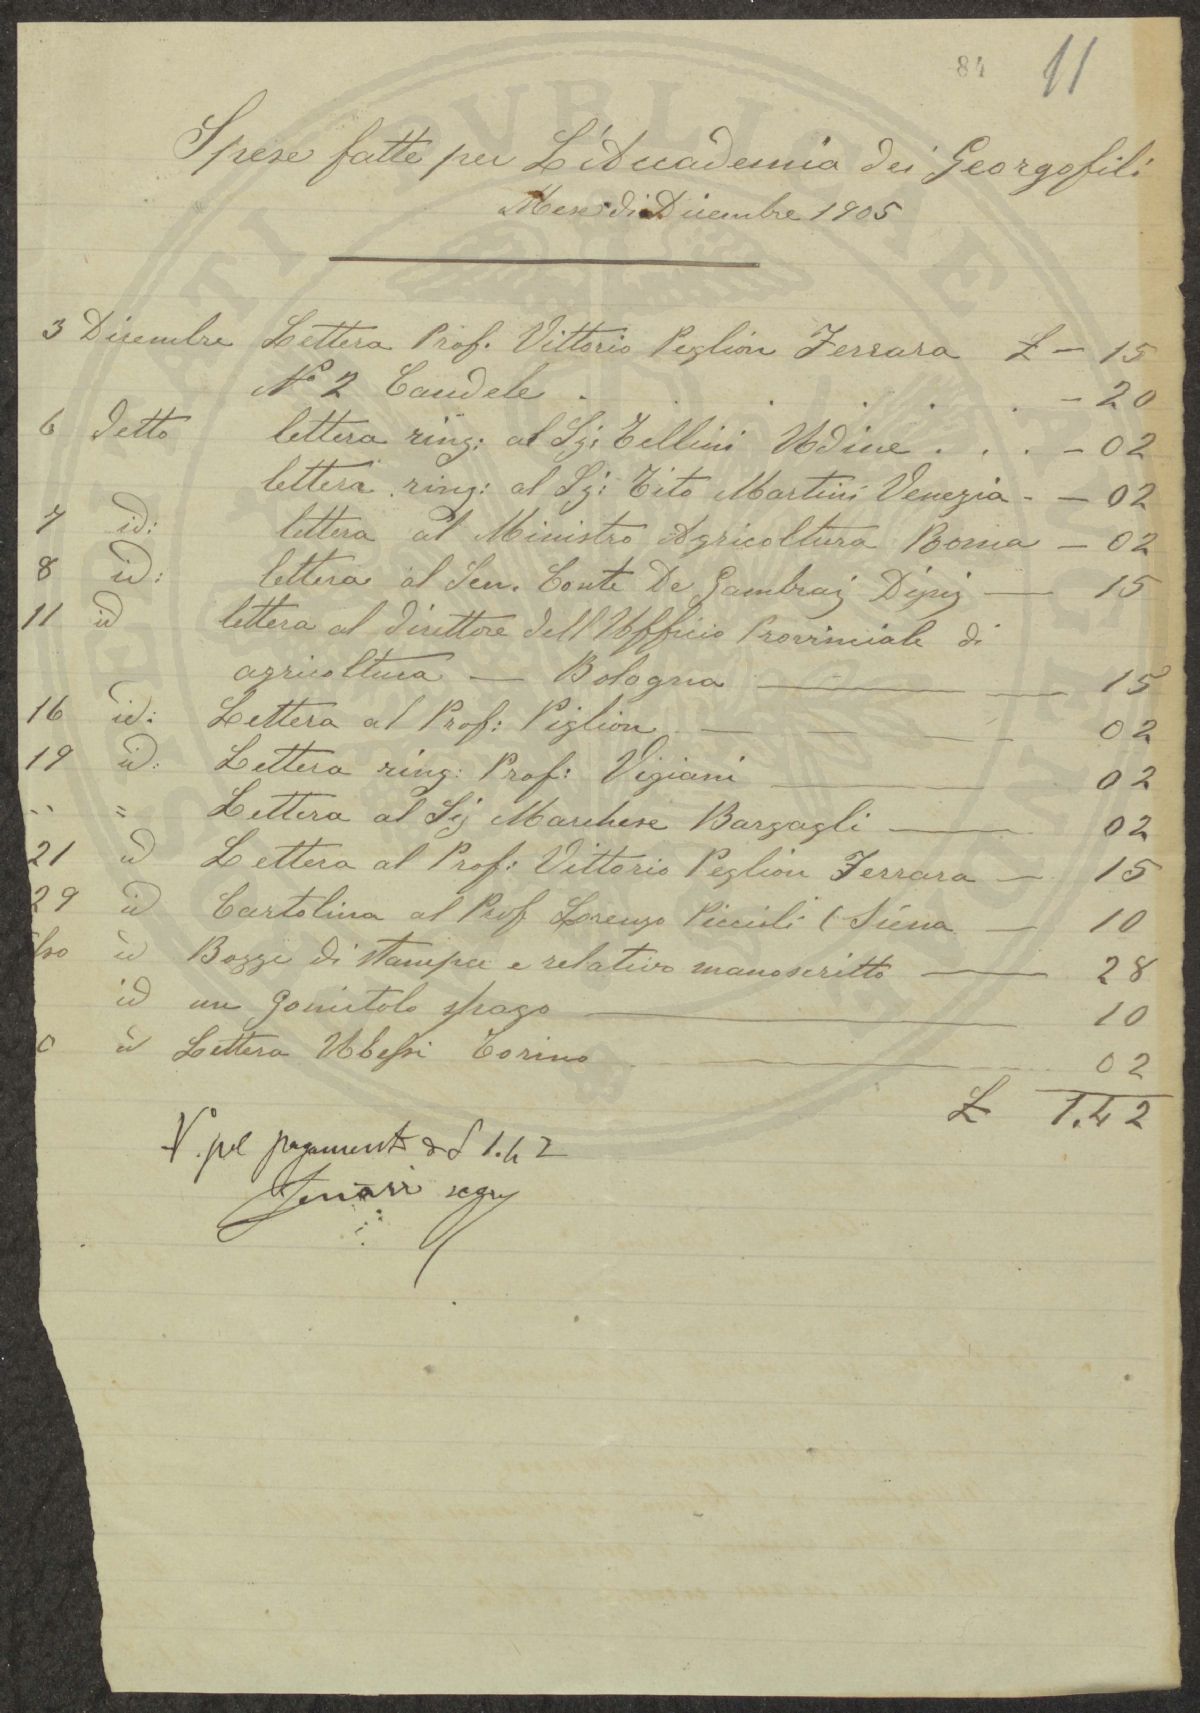 84 11
Spese fatte per L'Accademia dei Georgofili
Mese di Dicembre 1905
3 Dicembre Lettera Prof. Vittorio Peglion Ferrara £ - 15
No 2 Candele . . . . . . - 20
6 detto lettera ring: al Sg: Tellini Udine . . . - 02
lettera ring: al Sg: Tito Martini Venezia - - 02
7 id: lettera al Ministro Agricoltura Roma - 02
8 id: lettera al Sen. Conte De — 15
11 id lettera al direttore dell'Ufficio Provinciale di
agricoltura — Bologna — 15
16 id: Lettera al Prof: Piglion — 02
19 id: Lettera ring: Prof: Vigiani — 02
" = Lettera al Sig Marchese Bargagli — 02
21 id Lettera al Prof: Vittorio Peglion Ferrara — 15
29 id Cartolina al Prof Lorenzo Piccioli (Siena — 10
id Bozze di stampa e relativo manoscritto — 28
id un gomitolo spago — 10
0 id Lettera Torino — 02
£ 1.42
V. pel pagamento di £ 1.42
segr